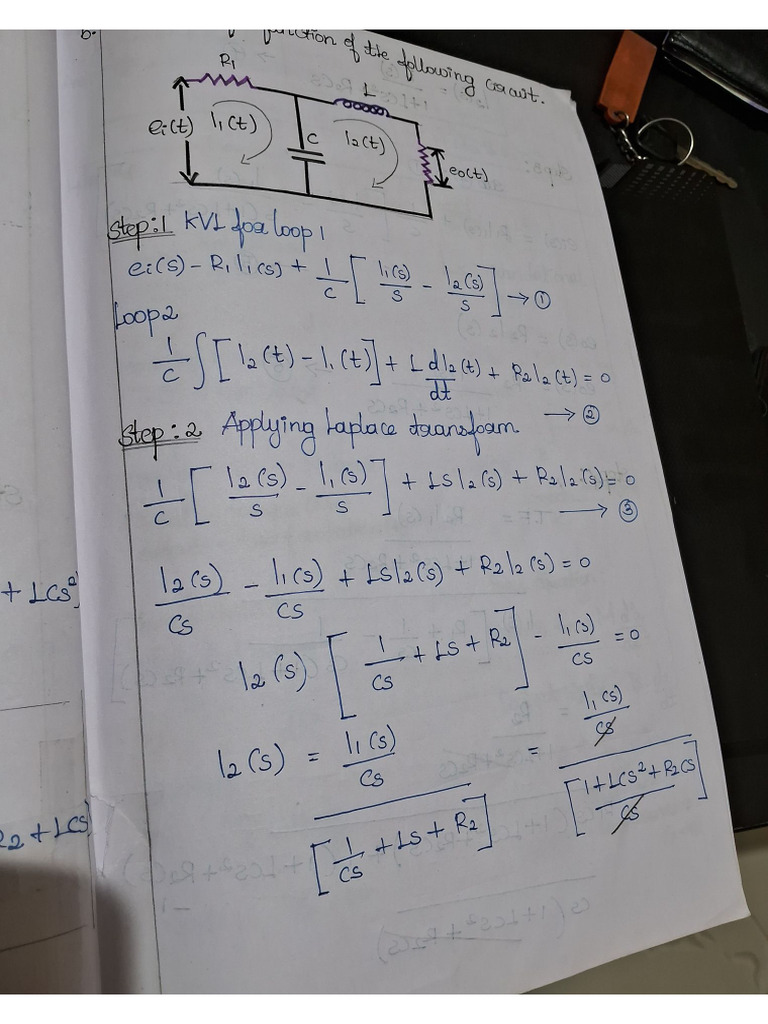 b.
function of the following circuit.
R1
L
ei(t)
I1(t)
C
I2(t)
eo(t)
Step:1 KVL for loop 1
ei(s) - R1 I1(s) + 1/C [ I1(s)/s - I2(s)/s ] → ①
Loop 2
1/C ∫ [ I2(t) - I1(t) ] + L dI2(t)/dt + R2I2(t) = 0
→ ②
Step:2 Applying Laplace transform
1/C [ I2(s)/s - I1(s)/s ] + LSI2(s) + R2I2(s) = 0
→ ③
I2(s)/CS - I1(s)/CS + LSI2(s) + R2I2(s) = 0
+ LCS²)
I2(s) [ 1/CS + LS + R2 ] - I1(s)/CS = 0
I2(s) = I1(s)/CS / [ 1/CS + LS + R2 ] = I1(s)/CS / [ 1+LCS²+R2CS / CS ]
R2 + LCS)